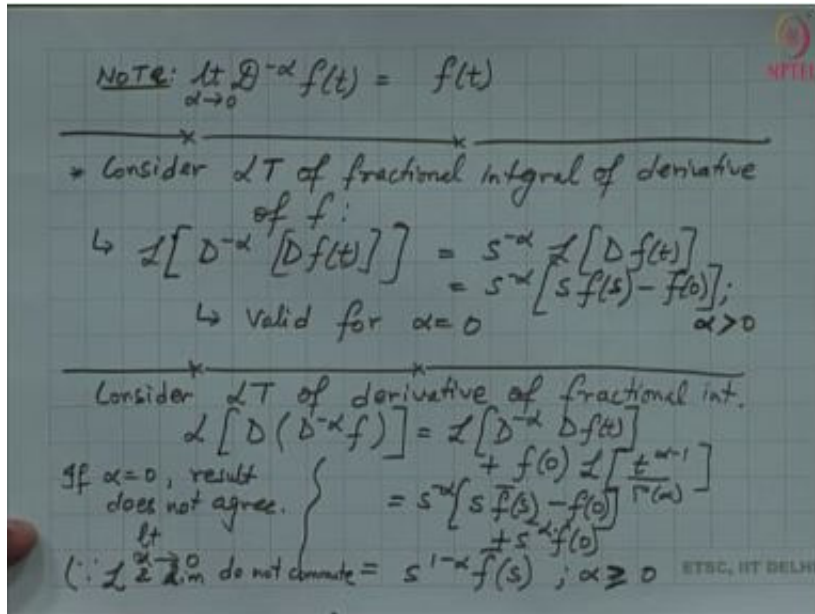 NPTEL
NOTE: lt α→0 D^-α f(t) = f(t)
* Consider LT of fractional integral of derivative
of f:
↳ L[D^-α [Df(t)]] = s^-α L[Df(t)]
= s^-α [s f̄(s) - f(0)];
↳ Valid for α=0 α>0
Consider LT of derivative of fractional int.
L[D(D^-α f)] = L[D^-α Df(t)]
+ f(0) L[t^α-1 / Γ(α)]
If α=0, result
does not agree.
= s^-α [s f̄(s) - f(0)]
+ s^-α f(0)
lt α→0
(∵ L & lim do not commute = s^1-α f̄(s) ; α ≥ 0
ETSC, IIT DELHI